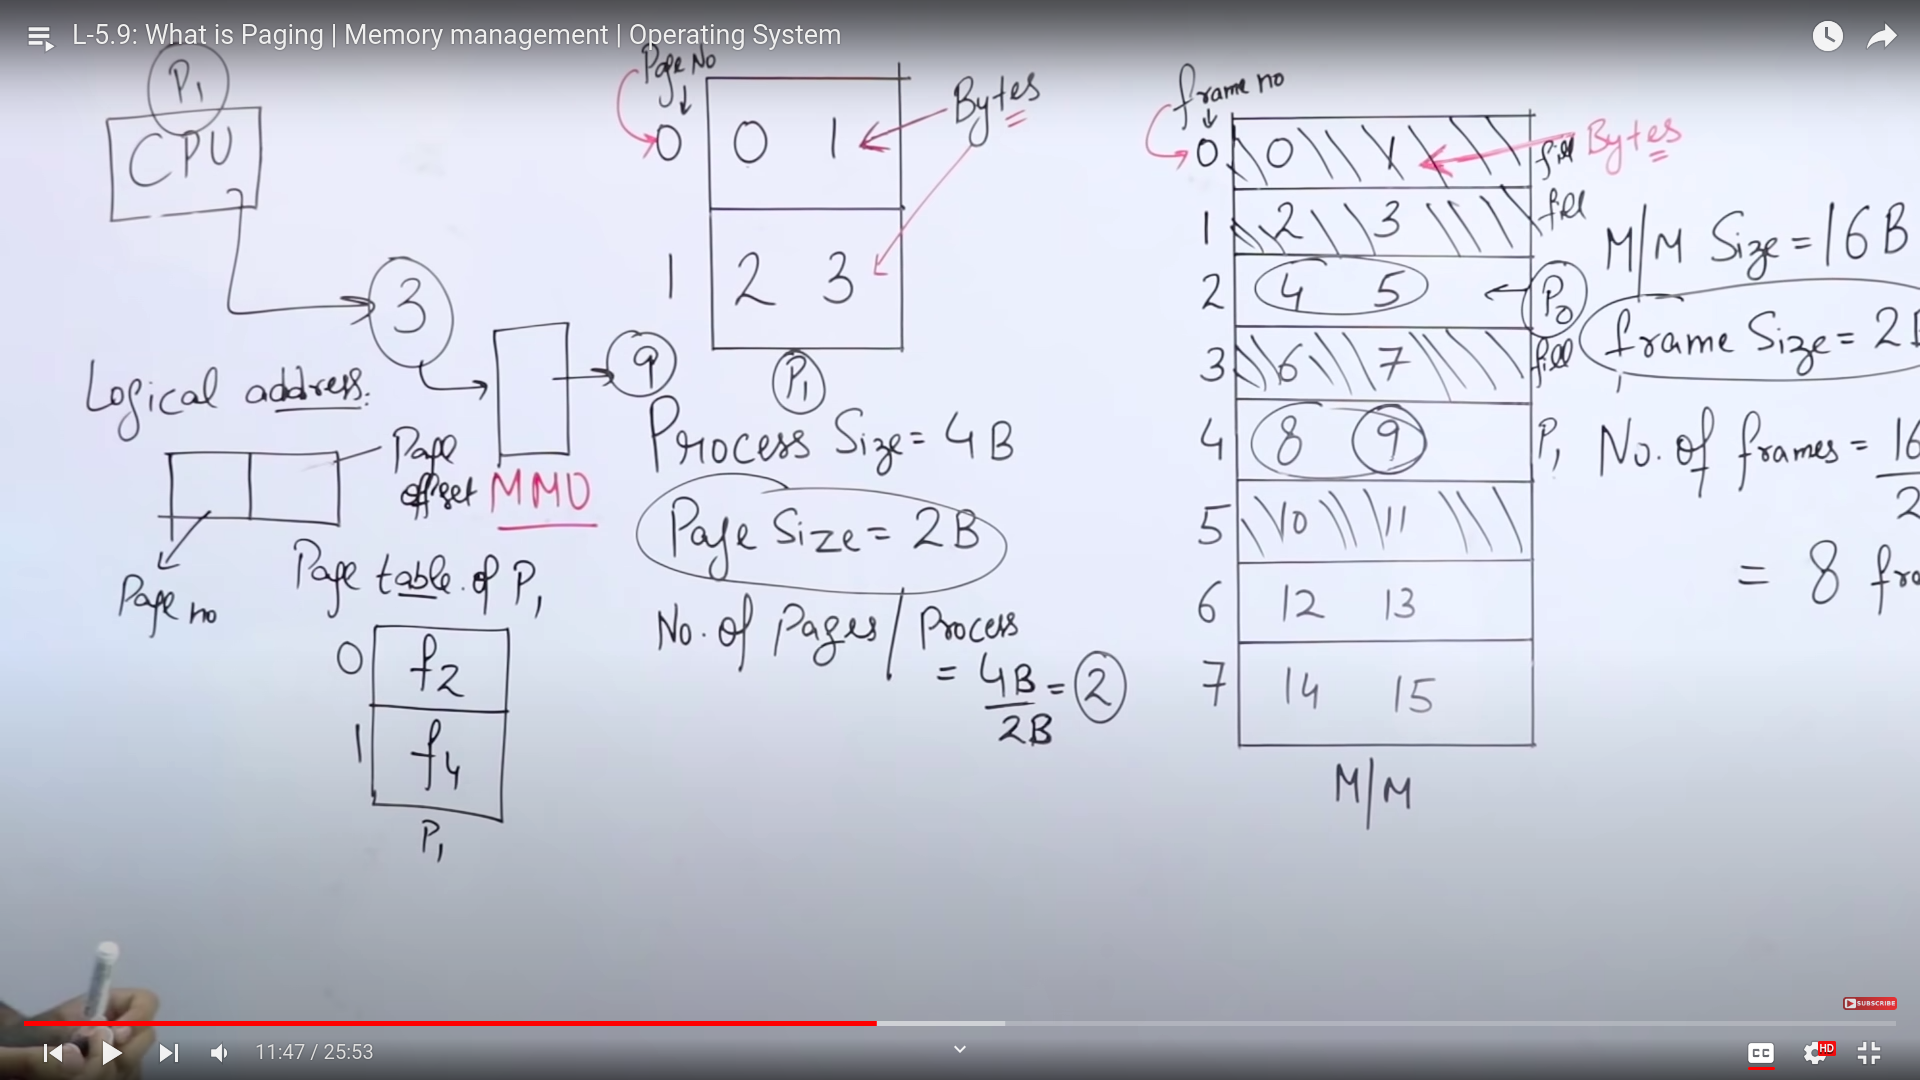 L-5.9: What is Paging | Memory management | Operating System
P1
CPU
3
9
Logical address:
Page offset
MMU
Page no
Page table of P1
0 f2
1 f4
P1
Page No
Bytes
0 0 1
1 2 3
P1
Process Size = 4B
Page Size = 2B
No. of Pages / Process
= 4B/2B = 2
frame no
Bytes
0 0 1 fill
1 2 3 fill
2 4 5 P0
3 6 7 fill
4 8 9 P1
5 10 11
6 12 13
7 14 15
M/M
M/M Size = 16B
frame Size = 2B
No. of frames = 16
2
= 8 fra
SUBSCRIBE
11:47 / 25:53
CC
HD